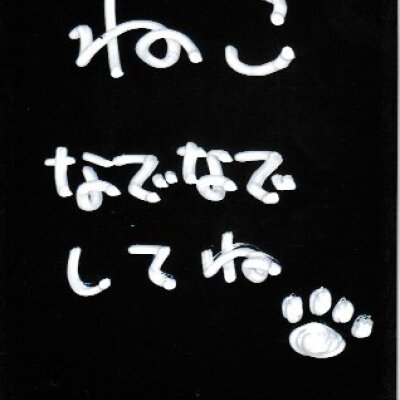 ねこ
なでなで
してね